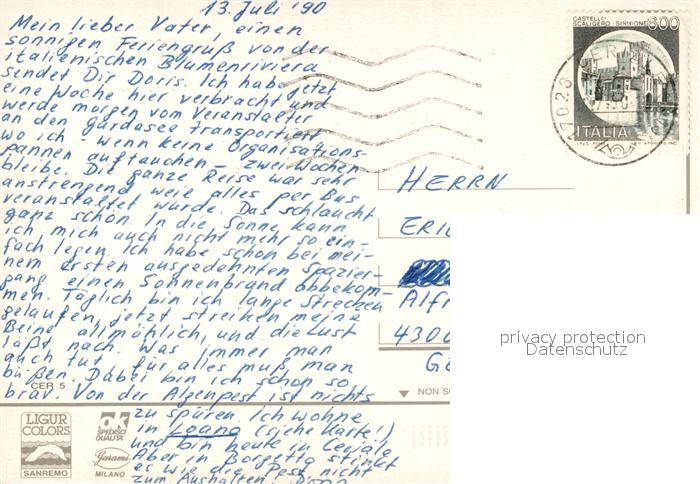 13. Juli '90
Mein lieber Vater, einen
sonnigen Feriengruß von der
italienischen Blumenriviera
sendet Dir Doris. Ich habe jetzt
eine Woche hier verbracht und
werde morgen vom Veranstalter
an den Gardasee transportiert
wo ich - wenn keine Organisations-
pannen auftauchen - zwei Wochen
bleibe. Die ganze Reise war sehr
anstrengend, weie alles per Bus
veranstaltet wurde. Das schlaucht
ganz schön. In die Sonne kann
ich, mich auch nicht mehr so ein-
fach legen. Ich habe schon bei mei-
nem ersten ausgedehnten Spazier-
gang einen Sonnenbrand abbekom-
men. Täglich bin ich lange Strecken
gelaufen, jetzt streiken meine
Beine allmählich, und die Lust
läßt nach. Was immer man
auch tut für alles muß man
büßen. Dabei bin ich schon so
brav. Von der Algenpest ist nichts
zu spüren. Ich wohne
in Loano (siehe Karte!)
und bin heute in Ceriale
Aber in Borgetto stinkt
es wie die Pest nicht
zum Aushalten.
CASTELLO
SCALIGERO - SIRMIONE
600
ITALIA
17023
HERRN
ERIC
Alfr
4300
privacy protection
Datenschutz
CER 5
NON S
LIGUR
COLORS
SANREMO
ok
SPEDISCI
QUALITÀ
Garami
MILANO